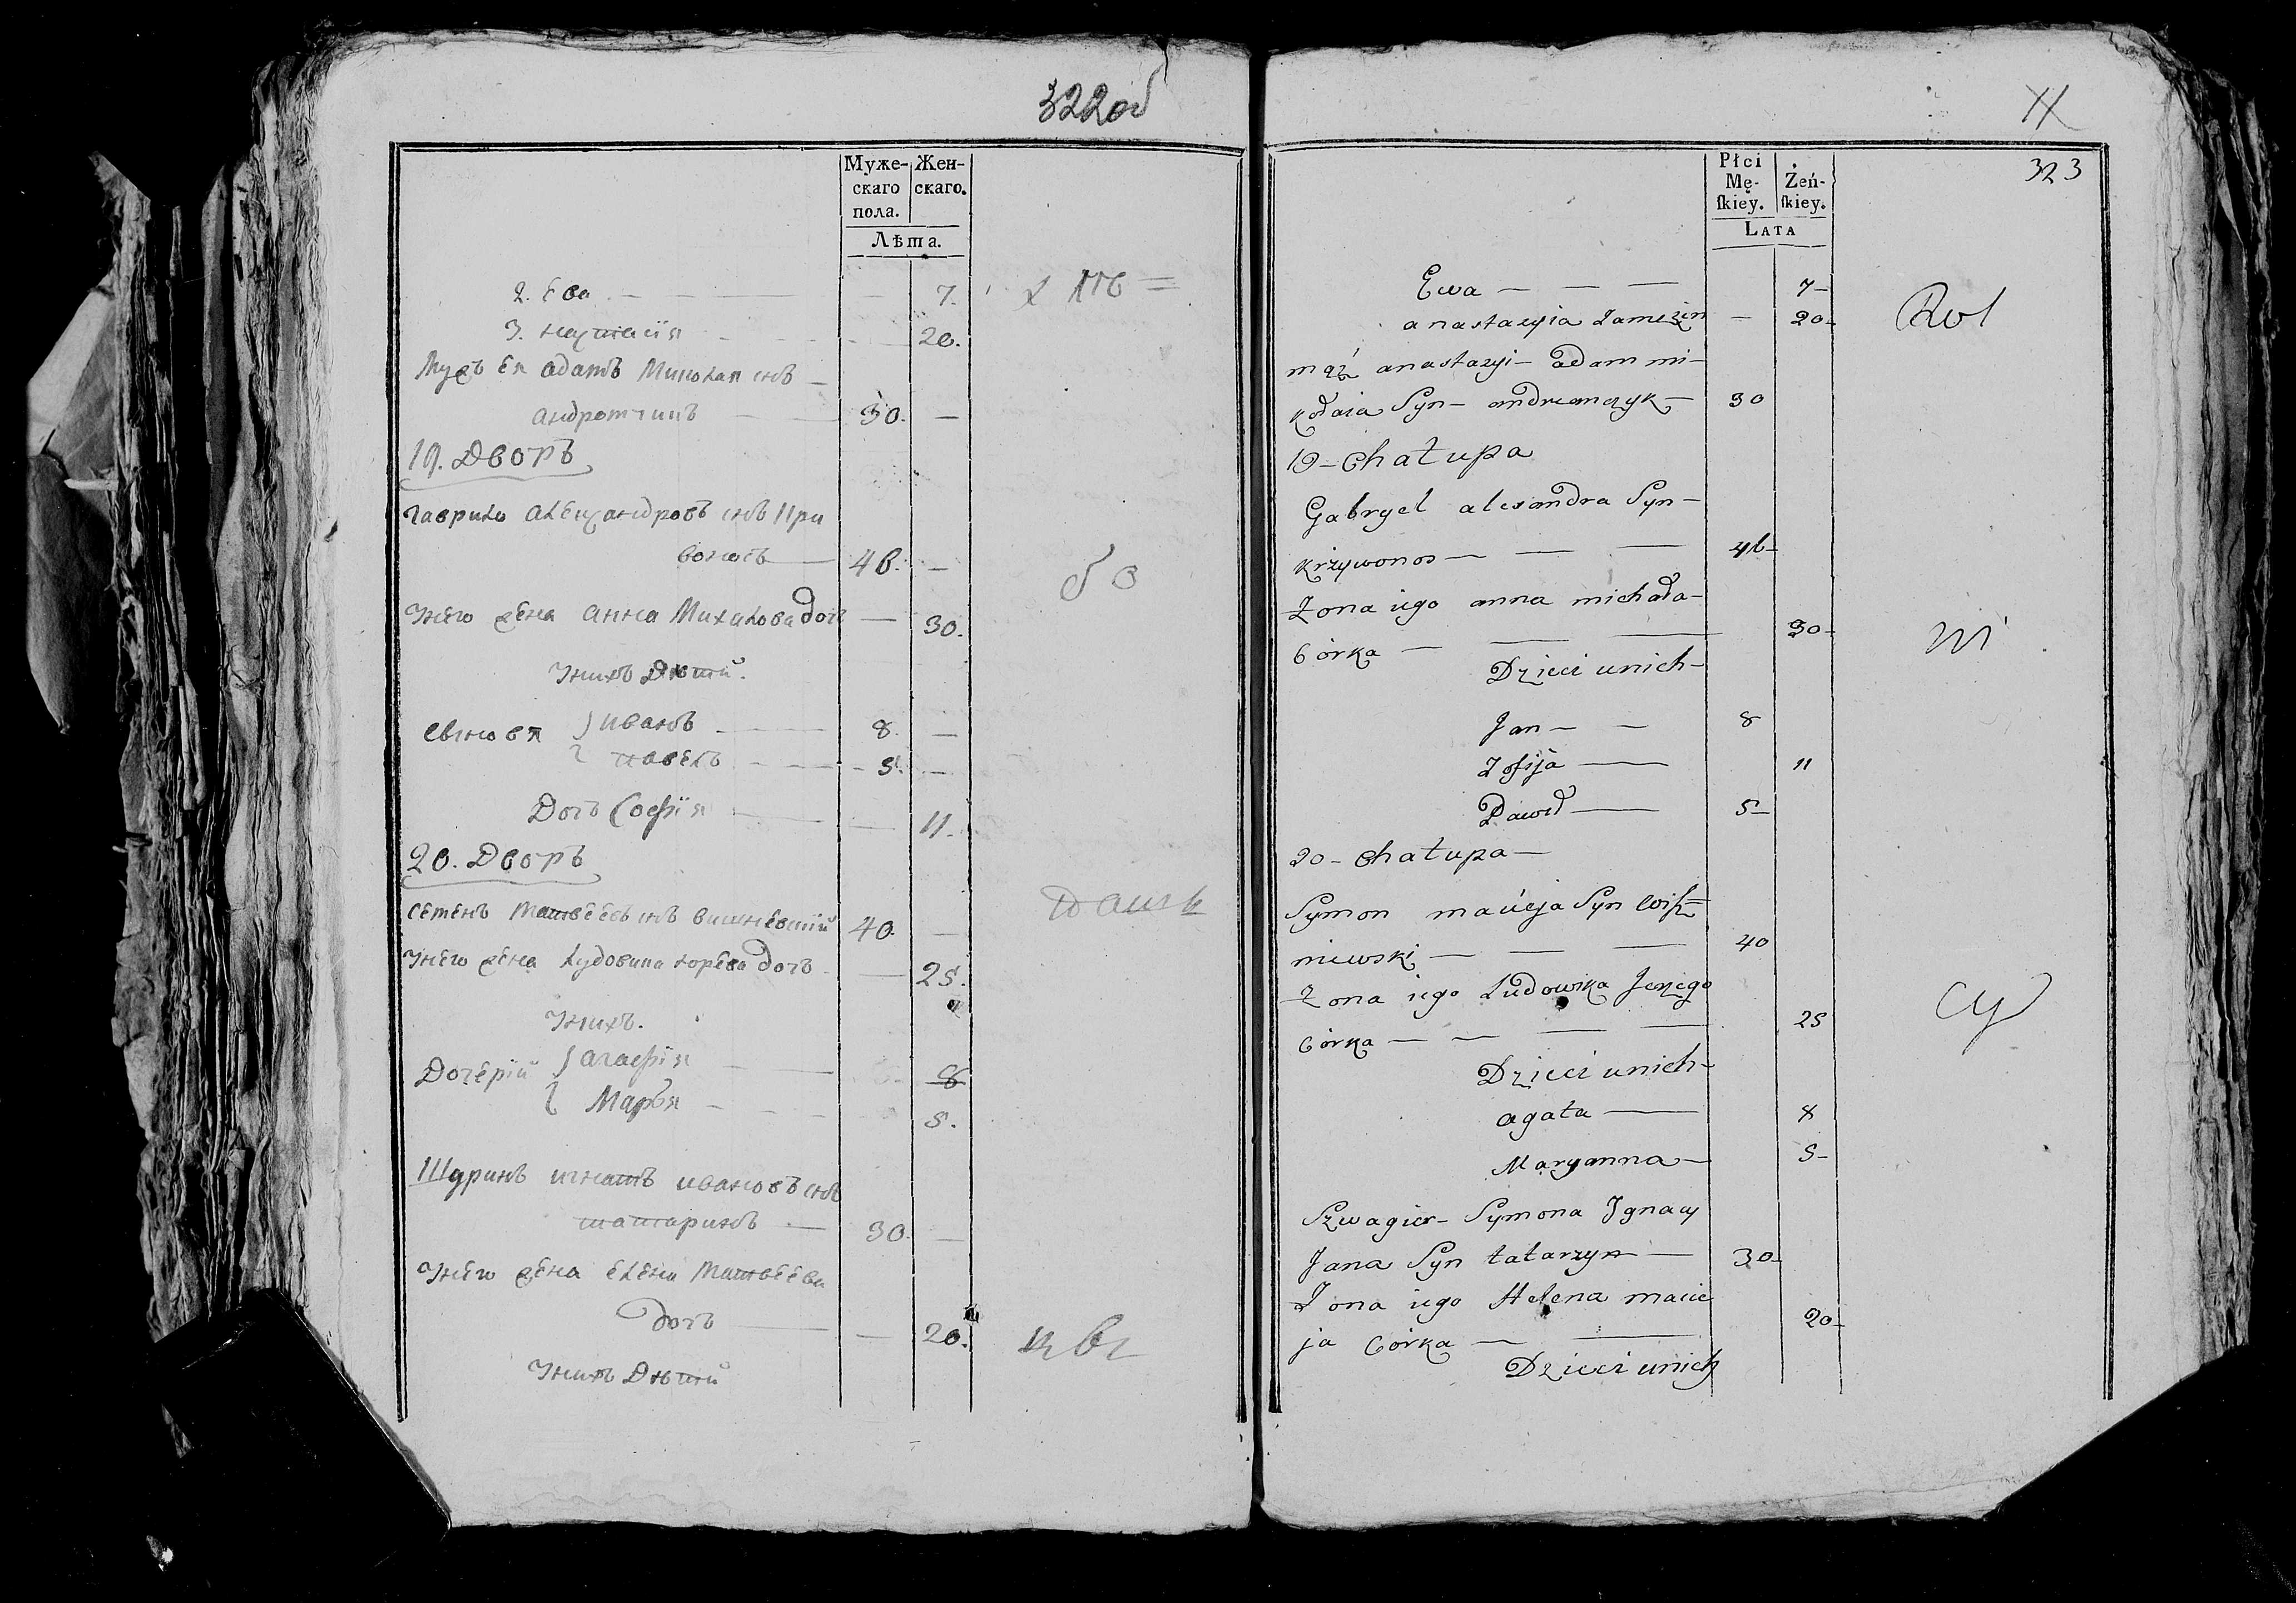 322об
Муже-
скаго
пола.
Жен-
скаго.
Лѣта.
2. Ева — — — — 7.
3. настасія — — — 20.
Мужъ ея адамъ Миколая снъ —
андромчикъ — 30. —
19. Дворъ
гаврило александровъ снъ Кри
воносъ — 46. —
Унего жена анна Михилова дочь — 30.
Унихъ Дѣтй.
Сынов я { иванъ — 8. —
{ павелъ — 5. —
Дочь Софія — — 11.
20. Дворъ
Семенъ Матвеевъ снъ вишневскій 40. —
Унего жена Людовика юрева дочь — 25.
Унихъ.
Дочерій { агафія — 8
{ Марья — 5.
Шуринъ игнатъ ивановъ снъ
татаринъ — 30. —
Унего жена елена Матвеева
дочь — — 20.
Унихъ Дѣтй
323
Płci
Mę-
skiey.
Żeń-
skiey.
LATA
Ewa — — — 7–
anastazyia Zamężn — 20–
mąż anastazyi – adam mi–
kołaia Syn – andreamczyk – 30
19 – Chałupa
Gabryel alexandra Syn –
Krzywonos — — — 46–
Żona iego anna michała –
Córka — — — 30–
Dzieci unich –
Jan — — 8
Zofija — 11
Paweł — 5–
20 – Chałupa —
Symon macieja Syn Wisz=
niewski — — — 40
Żona iego Ludowika Jerzego
Córka — — — — 25
Dzieci unich –
agata — 8
Maryanna — 5–
Szwagier – Symona Ignacy
Jana Syn tatarzyn — 30–
Żona iego Helena macie
ja Córka — — 20–
Dzieci unich